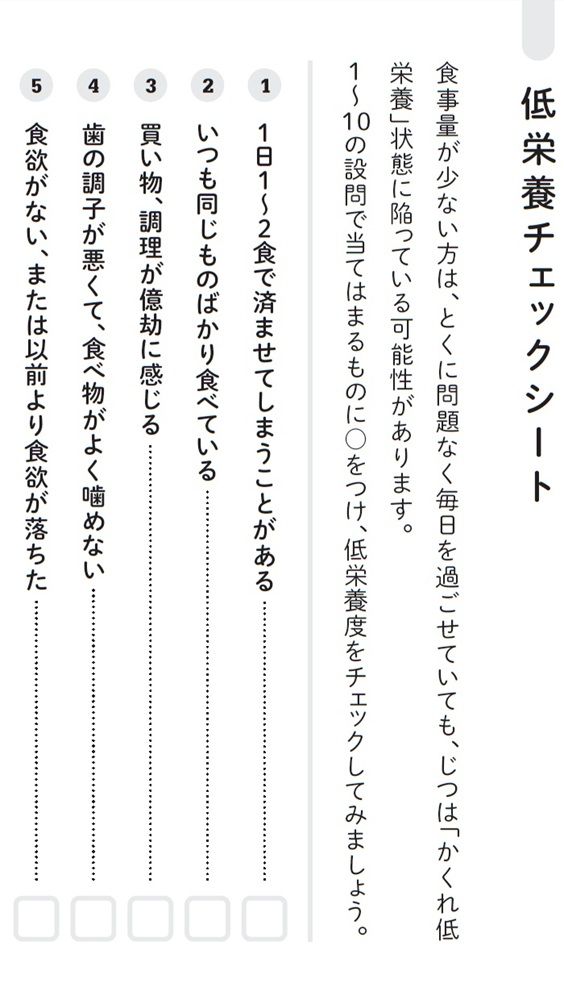 低栄養チェックシート
食事量が少ない方は、とくに問題なく毎日を過ごせていても、じつは「かくれ低
栄養」状態に陥っている可能性があります。
1～10の設問で当てはまるものに○をつけ、低栄養度をチェックしてみましょう。
1 1日1～2食で済ませてしまうことがある
2 いつも同じものばかり食べている
3 買い物、調理が億劫に感じる
4 歯の調子が悪くて、食べ物がよく噛めない
5 食欲がない、または以前より食欲が落ちた